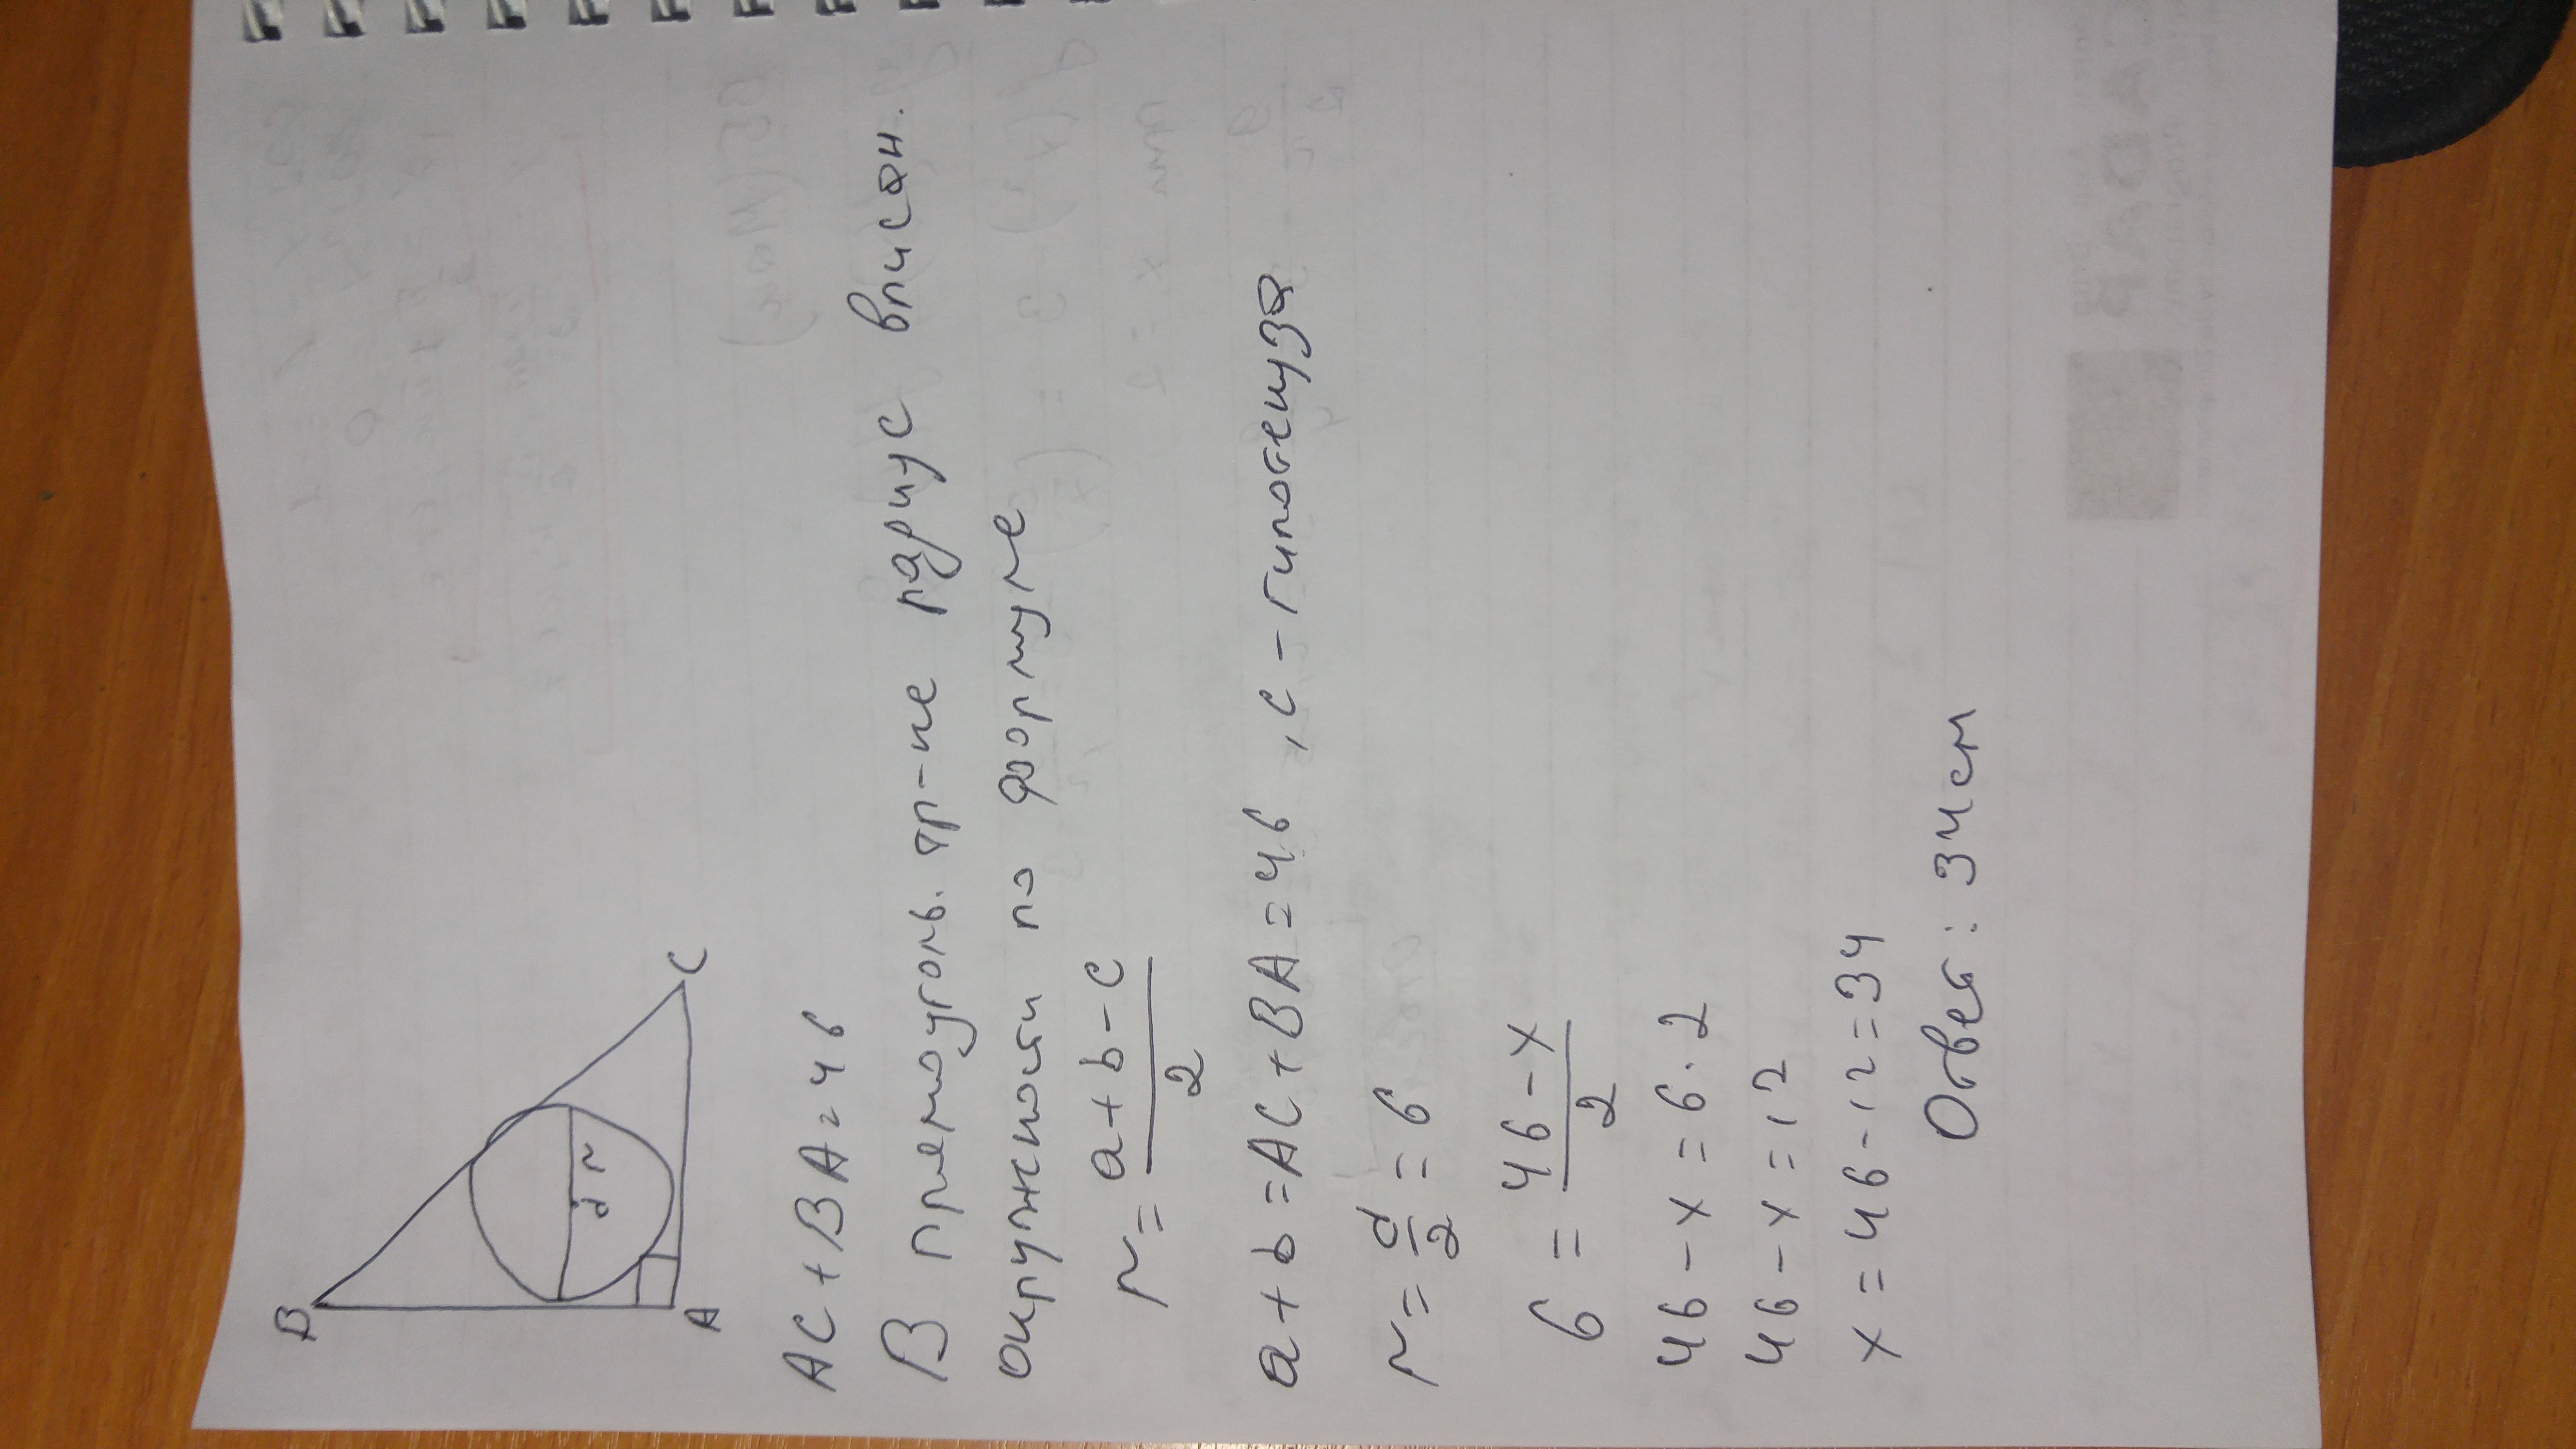 B
d r
A C
AC + BA = 46
В прямоуголь. тр-ке радиус вписан.
окружности по формуле
r = a + b - c / 2
a + b = AC + BA = 46 , c - гипотенуза
r = d/2 = 6
6 = 46 - x / 2
46 - x = 6 · 2
46 - x = 12
x = 46 - 12 = 34
Ответ: 34 см